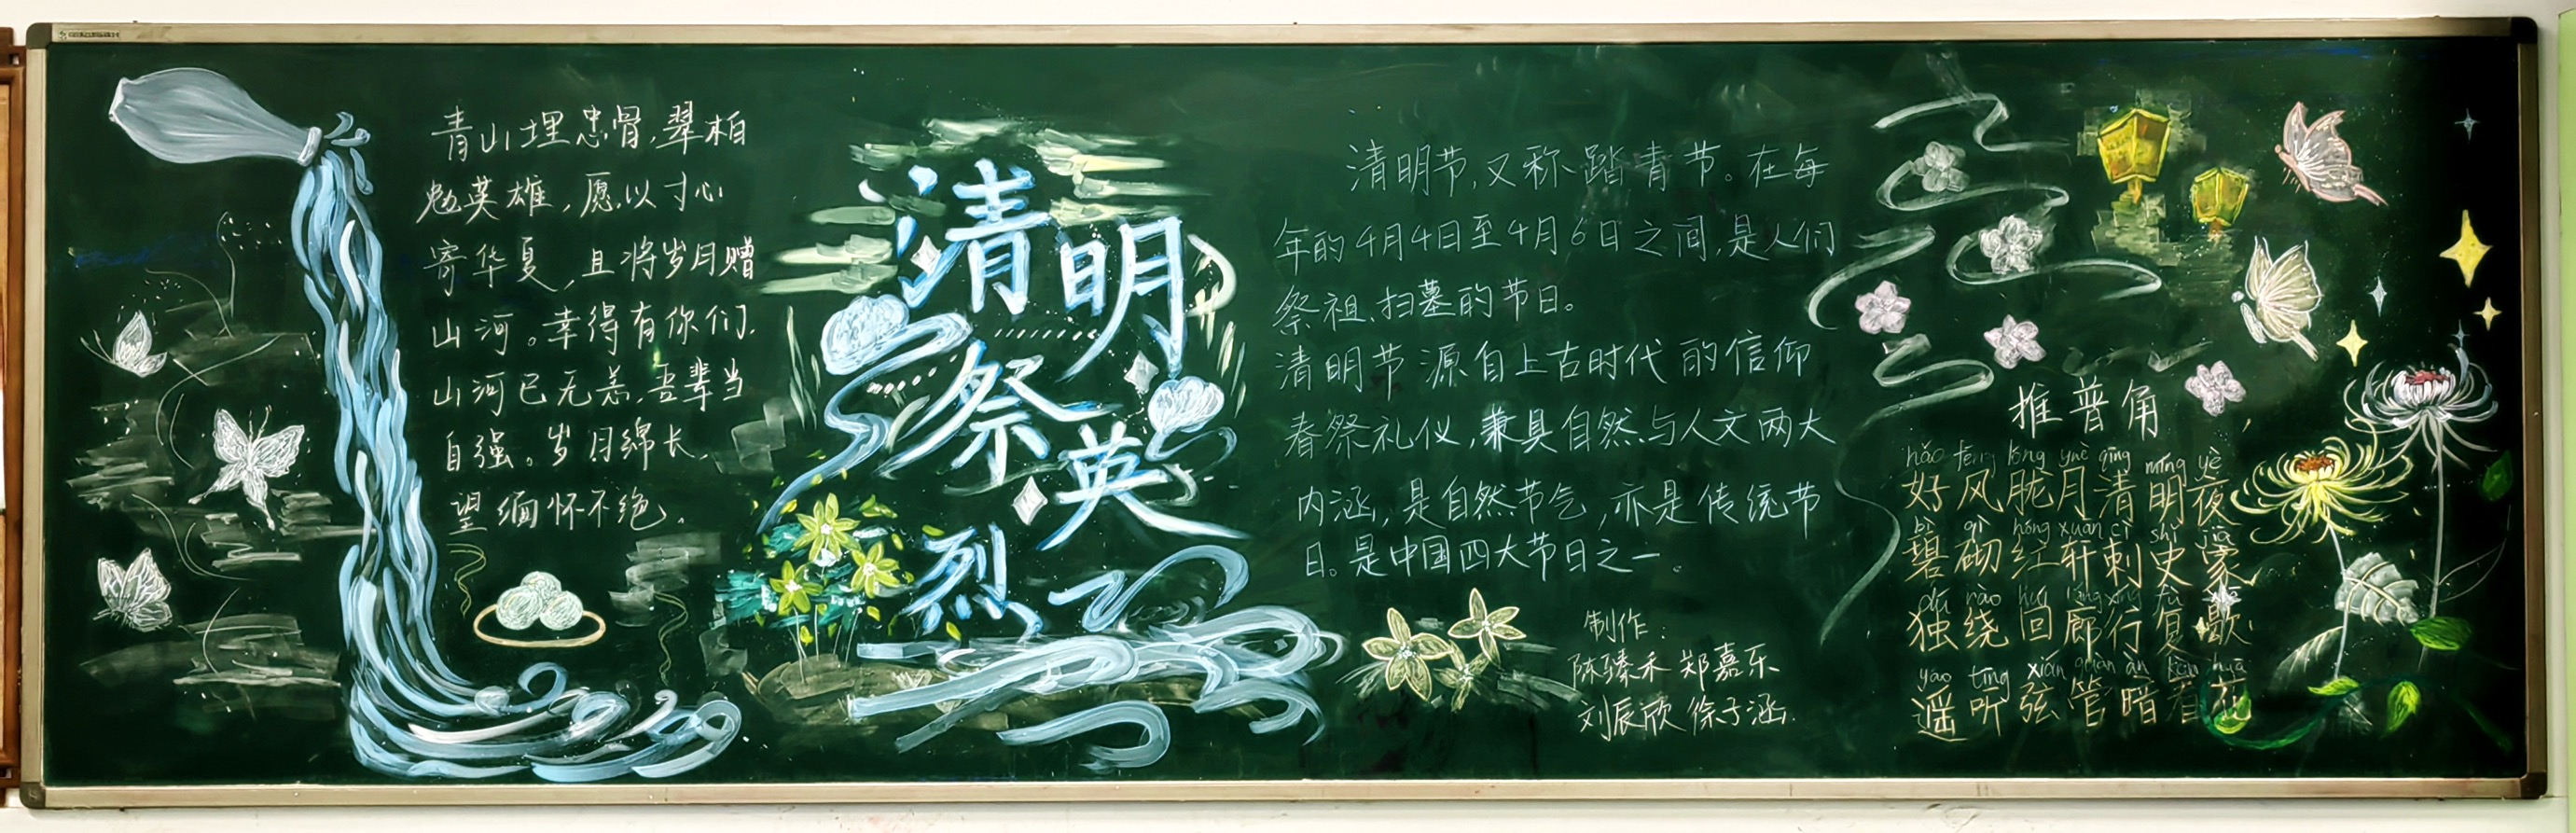 青山埋忠骨,翠柏
勉英雄,愿以寸心
寄华夏,且将岁月赠
山河。幸得有你们,
山河已无恙,吾辈当
自强。岁月绵长,
望缅怀不绝。
清明
祭英
烈
清明节,又称踏青节。在每
年的4月4日至4月6日之间,是人们
祭祖、扫墓的节日。
清明节源自上古时代的信仰
春祭礼仪,兼具自然与人文两大
内涵,是自然节气,亦是传统节
日。是中国四大节日之一。
制作:
陈臻禾 郑嘉乐
刘辰欣 徐子涵.
推普角
hǎo fēng lóng yuè qīng míng yè
好风胧月清明夜
bì qì hóng xuān cì shǐ jiā
碧砌红轩刺史家
dú rào huí láng xíng fù xiē
独绕回廊行复歇
yáo tīng xián guǎn àn kàn huā
遥听弦管暗看花